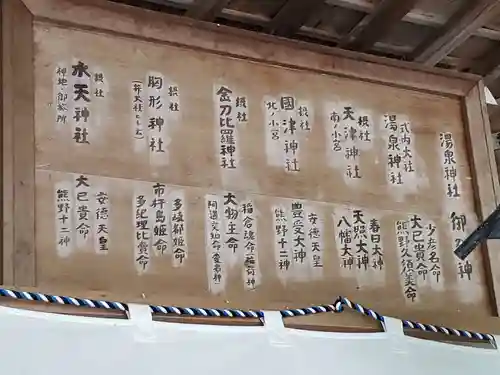 湯泉神社 御祭神
式内大社
湯泉神社
大己貴命
少彦名命
熊野久須美命
摂社
天津神社
南ノ小宮
春日大神
天照大神
八幡大神
摂社
國津神社
北ノ小宮
安徳天皇
豊受大神
熊野十二神
摂社
金刀比羅神社
稲倉魂命
大物主命
摂社
胸形神社
多岐都姫命
市杵島姫命
多紀理比賣命
摂社
水天神社
安徳天皇
大己貴命
熊野十二神